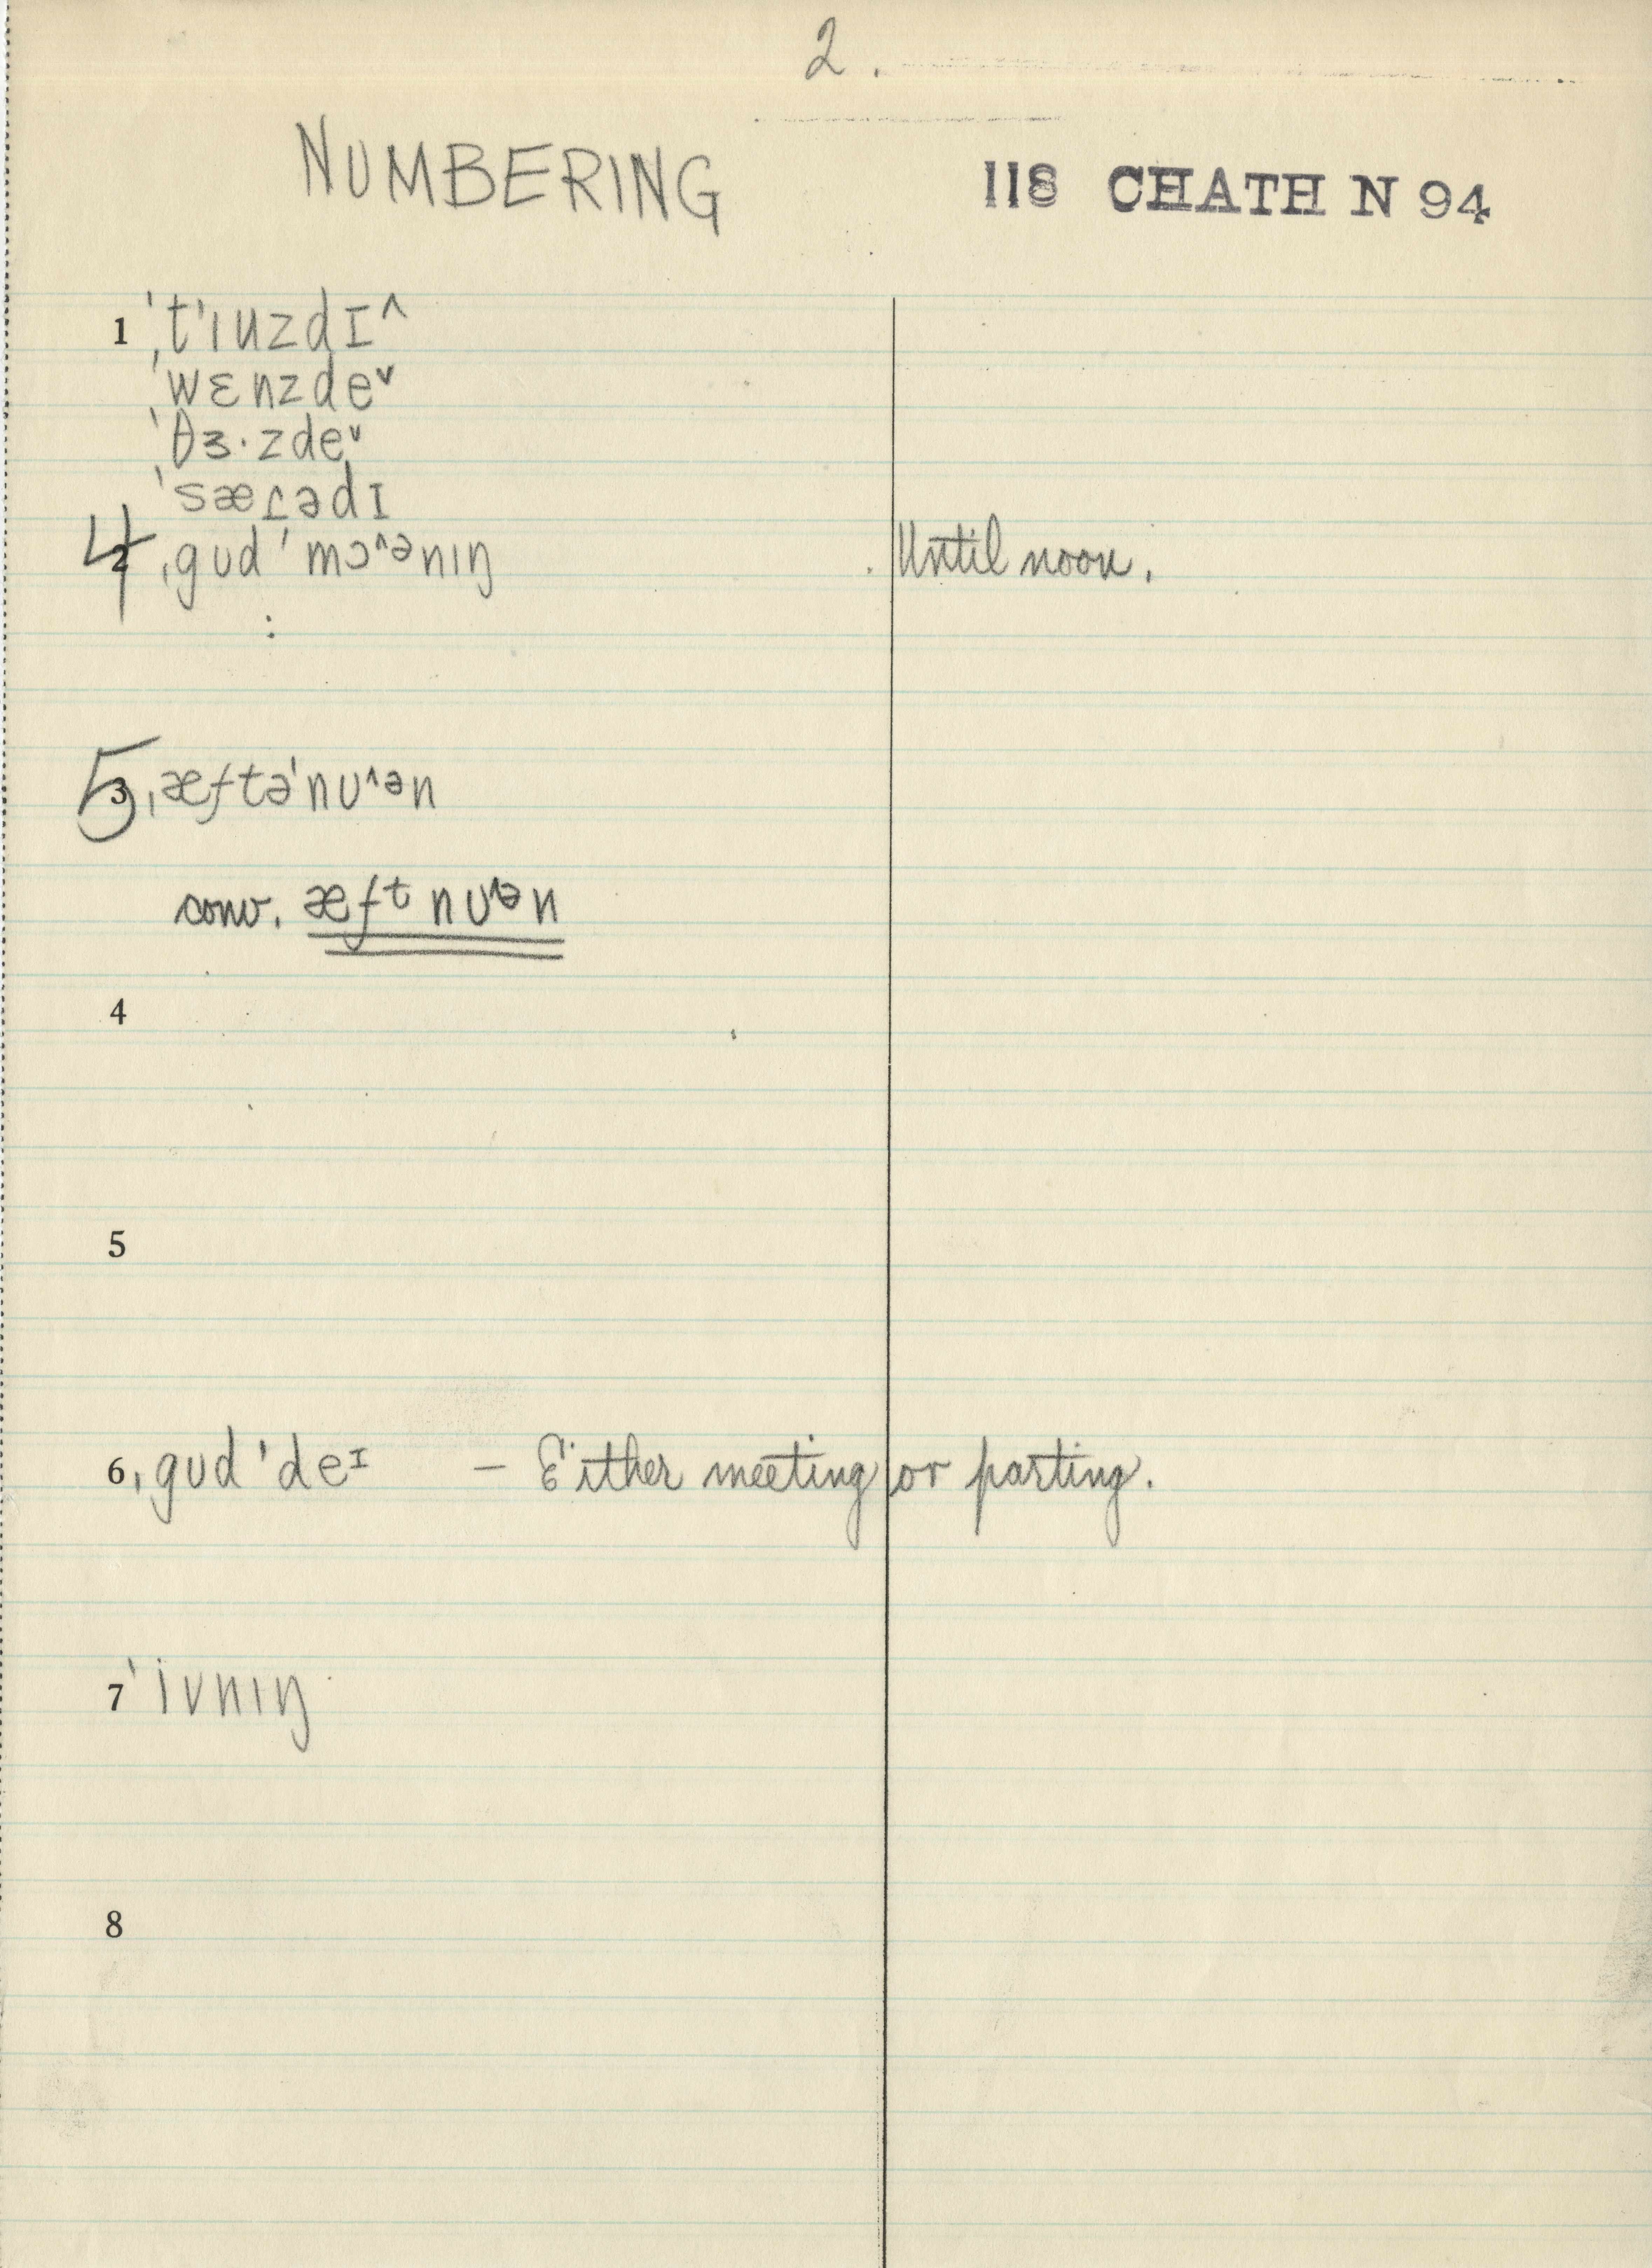 2.
NUMBERING
118 CHATH N 94
1 ˈtʼɪuzdɪ^
ˈwɛnzdeˇ
ˈθɜ·zdeˇ
ˈsæɾədɪ
4 2 ˌgud ˈmɔ^ənɪŋ Until noon.
:
5 3 ˌæftəˈnu^ən
conv. æft nu^ən
4
5
6 ˌgud ˈdeɪ – Either meeting or parting.
7 ˈivnɪŋ
8